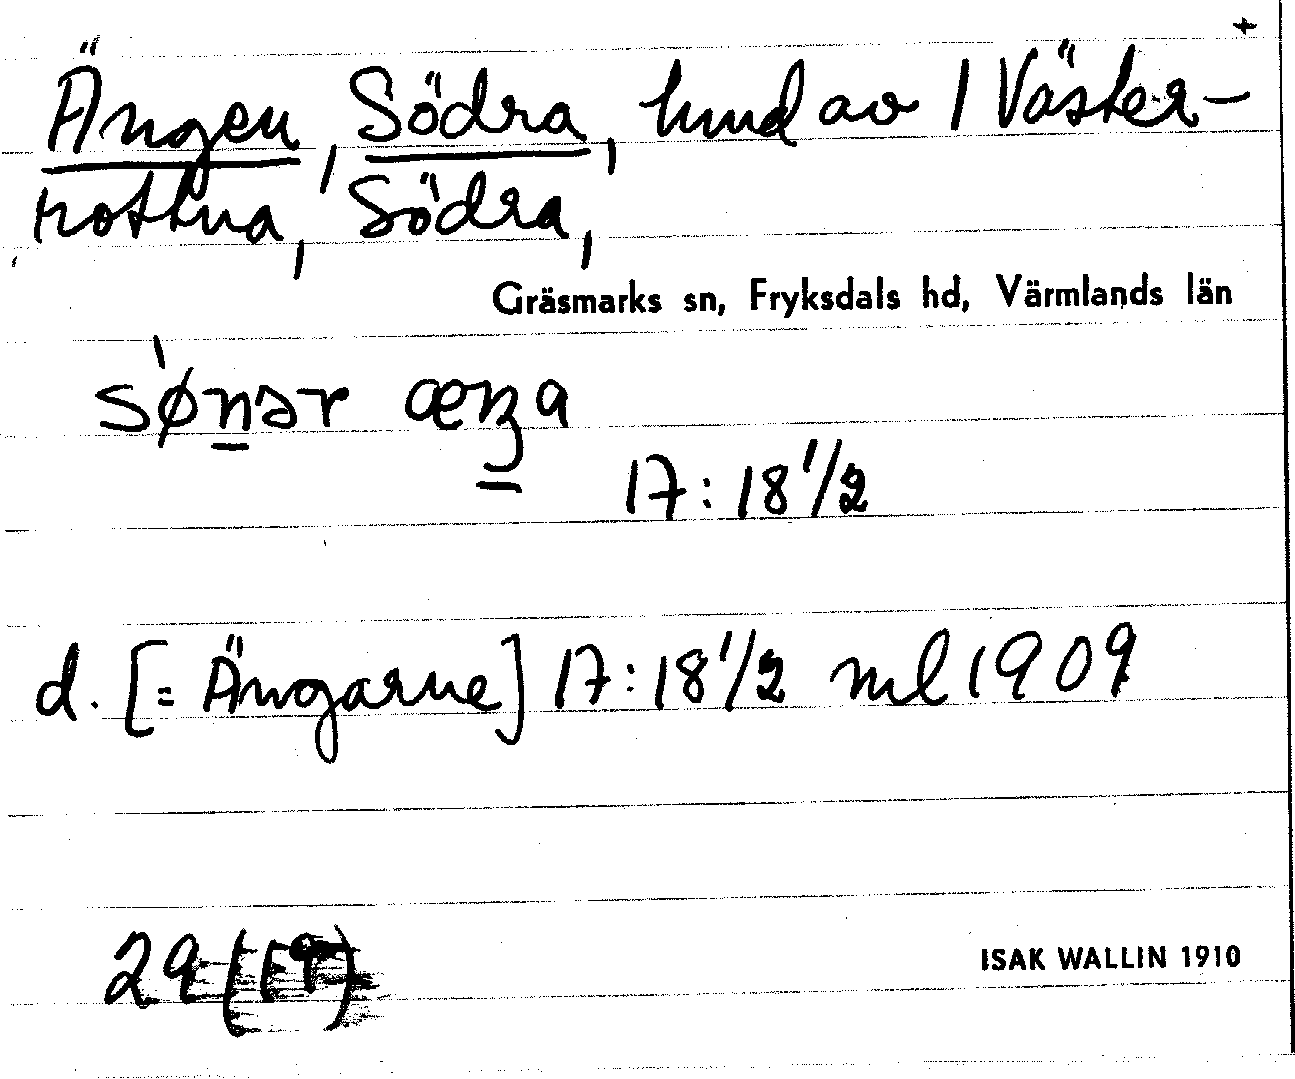 +
Ängen, Södra, hmd av 1 Väster-
rottna, Södra,
Gräsmarks sn, Fryksdals hd, Värmlands län
17:18 1/2
d. [= Ängarne] 17:18 1/2 ml 1909
29
ISAK WALLIN 1910